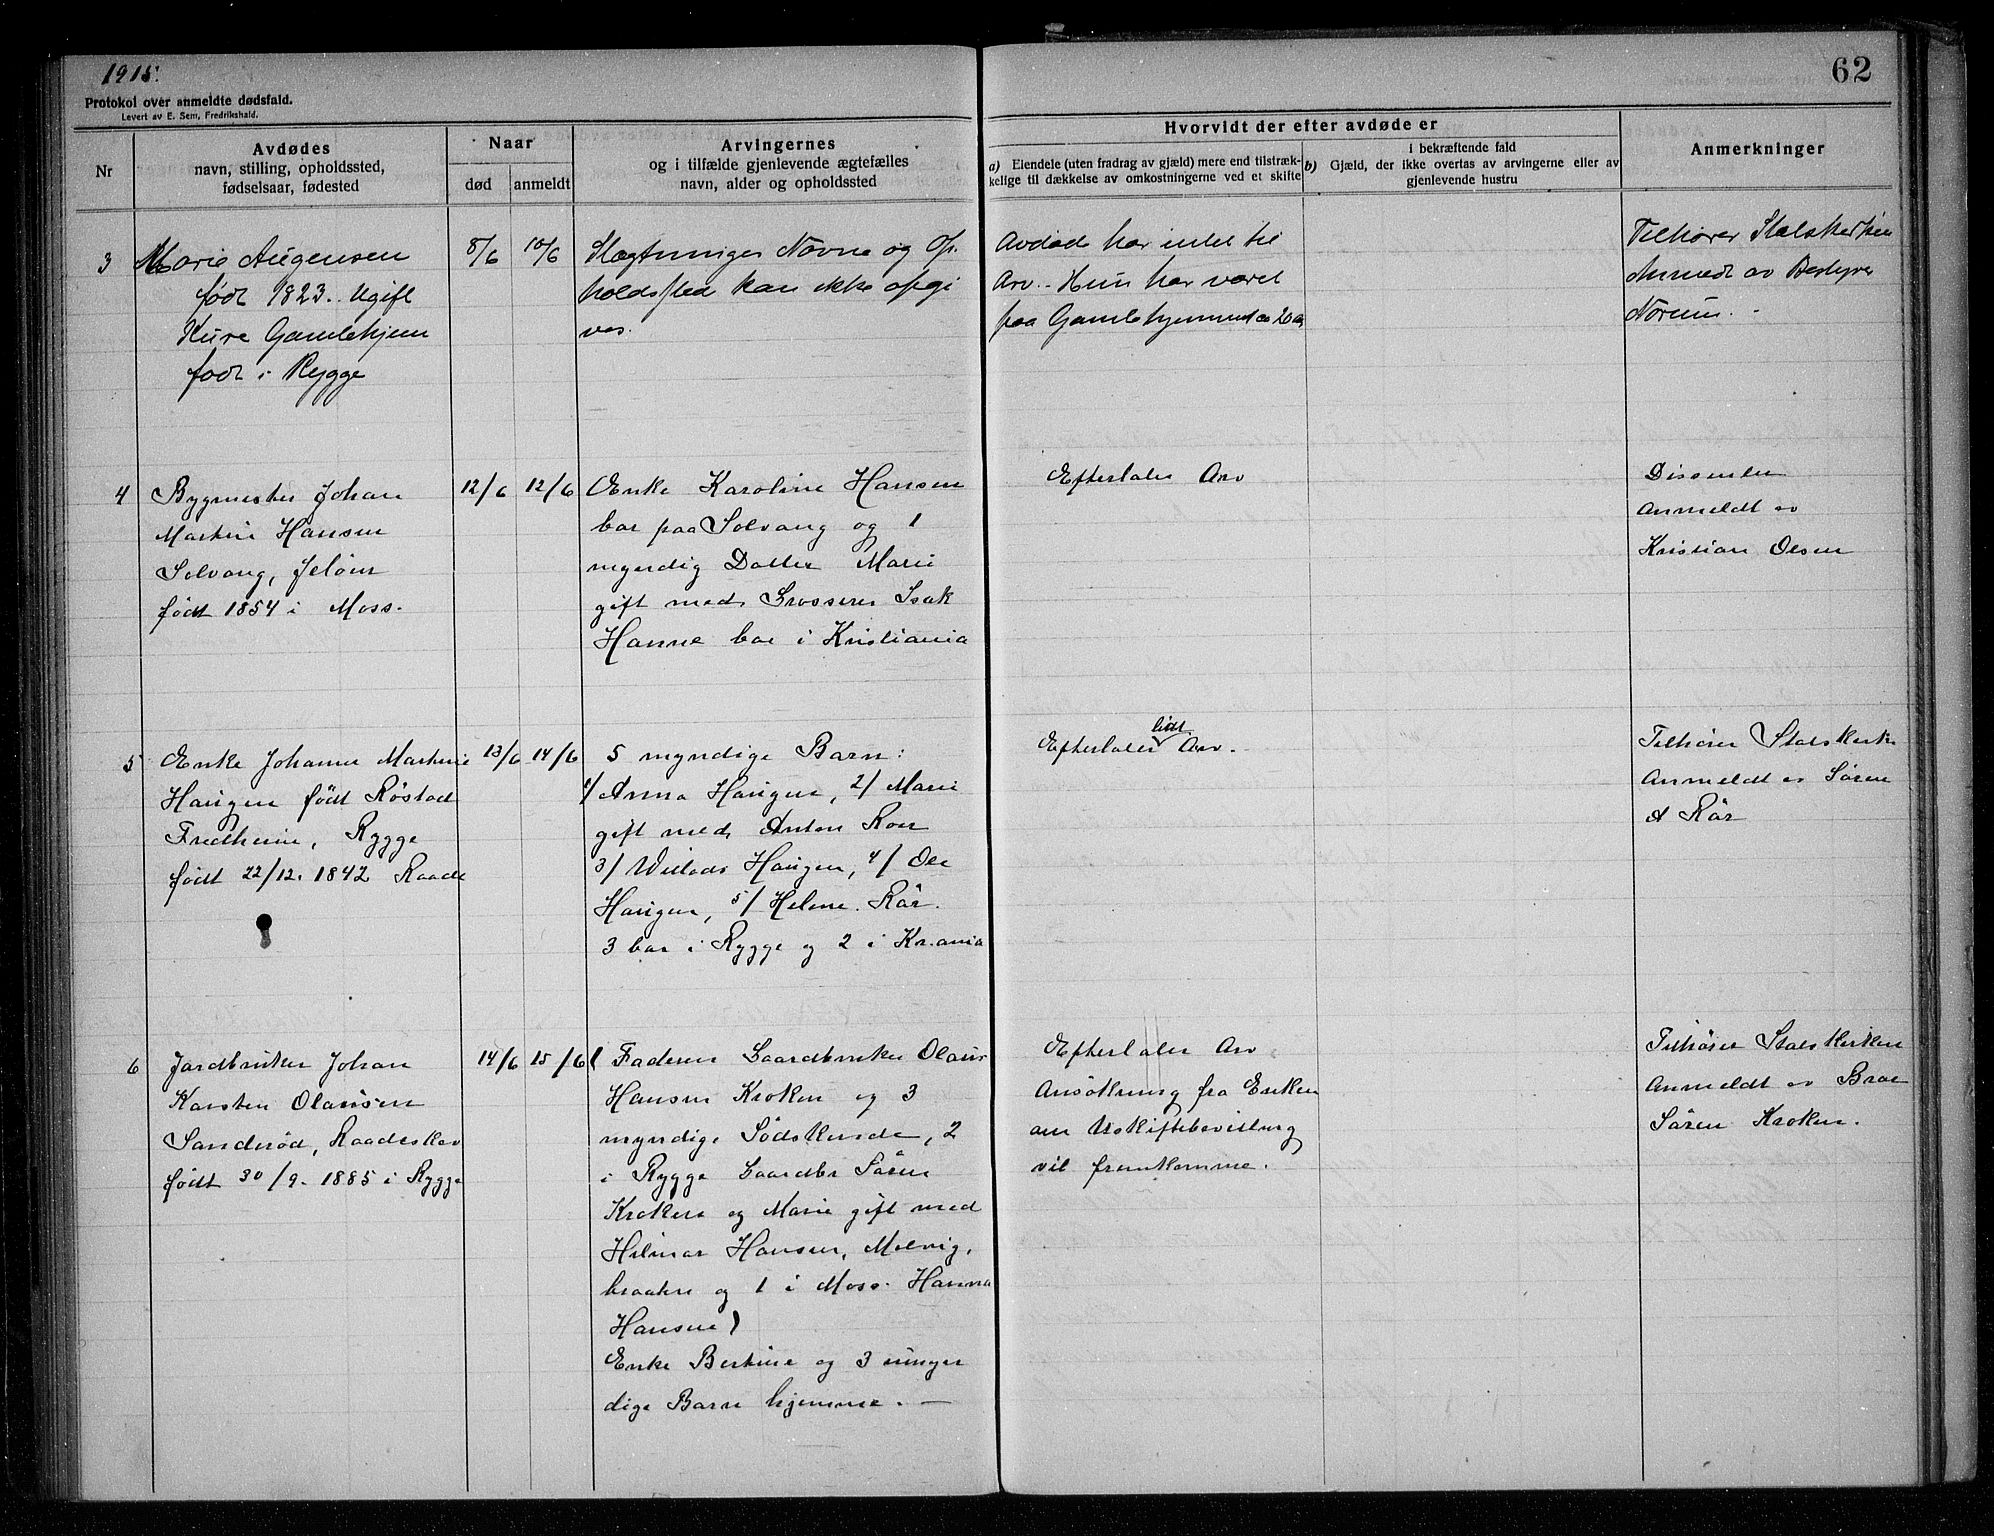 1915.
62
Protokol over anmeldte dødsfald.
Levert av E. Sem, Fredrikshald.
Nr
Avdødes
navn, stilling, opholdssted,
fødselsaar, fødested
Naar
død
anmeldt
Arvingernes
og i tilfælde gjenlevende ægtefælles
navn, alder og opholdssted
Hvorvidt der efter avdøde er
a) Eiendele (uten fradrag av gjæld) mere end tilstræk-
kelige til dækkelse av omkostningerne ved et skifte
i bekræftende fald
b) Gjæld, der ikke overtas av arvingerne eller av
gjenlevende hustru
Anmerkninger
3
Marie Augensen
født 1823. Ugift
Kure Gamlehjem
født i Rygge
8/6
10/6
Slægtninges Navne og Op-
holdssted kan ikke opgi
ves.
Avdøde har intet til
Arv. Hun har været
paa Gamlehjemmet ca
Tilhører Statskirken
Anmeldt av Bestyrer
Norum.
4
Bygmester Johan
Martin Hansen
Solvang, Jeløen
født 1854 i Moss.
12/6
12/6
Enke Karoline Hansen
bor paa Solvang og 1
myndig Datter Marie
gift med Grosserer Isak
Hanne bor i Kristiania
Efterlater Arv
Dissenter
Anmeldt av
Kristian Olsen
5
Enke Johanne Martine
Haugen født Røstad
Fredheim, Rygge
født 22/12. 1842 Raade
13/6
14/6
5 myndige Barn:
1/ Anna Haugen, 2/ Marie
gift med Anton Roer
3/ Haugen, 4/ Ole
Haugen, 5/ Helene Rör.
3 bor i Rygge og 2 i Kr.ania
Efterlater lidt Arv.
Tilhører Statskirke
Anmeldt av Søren
A Rör
6
Jordbruker Johan
Karsten Olausen
Sanderød, Raadeskov
født 30/9. 1885 i Rygge
14/6
15/6
( Faderen Gaardbruker Olaus
Hansen Kroken og 3
myndige Södskende, 2
i Rygge Gaardbr Sören
Kroken og Marie gift med
Hilmar Hansen, Molvig,
braaten og 1 i Moss. Hanna
Hansen)
Enke Bertine og 3 umyn
dige Barn hjemme. —
Efterlater Arv
Ansökning fra Enken
om Uskiftebevilling
vil fremkomme.
Tilhører Statskirken
Anmeldt av Bror
Sören Kroken.